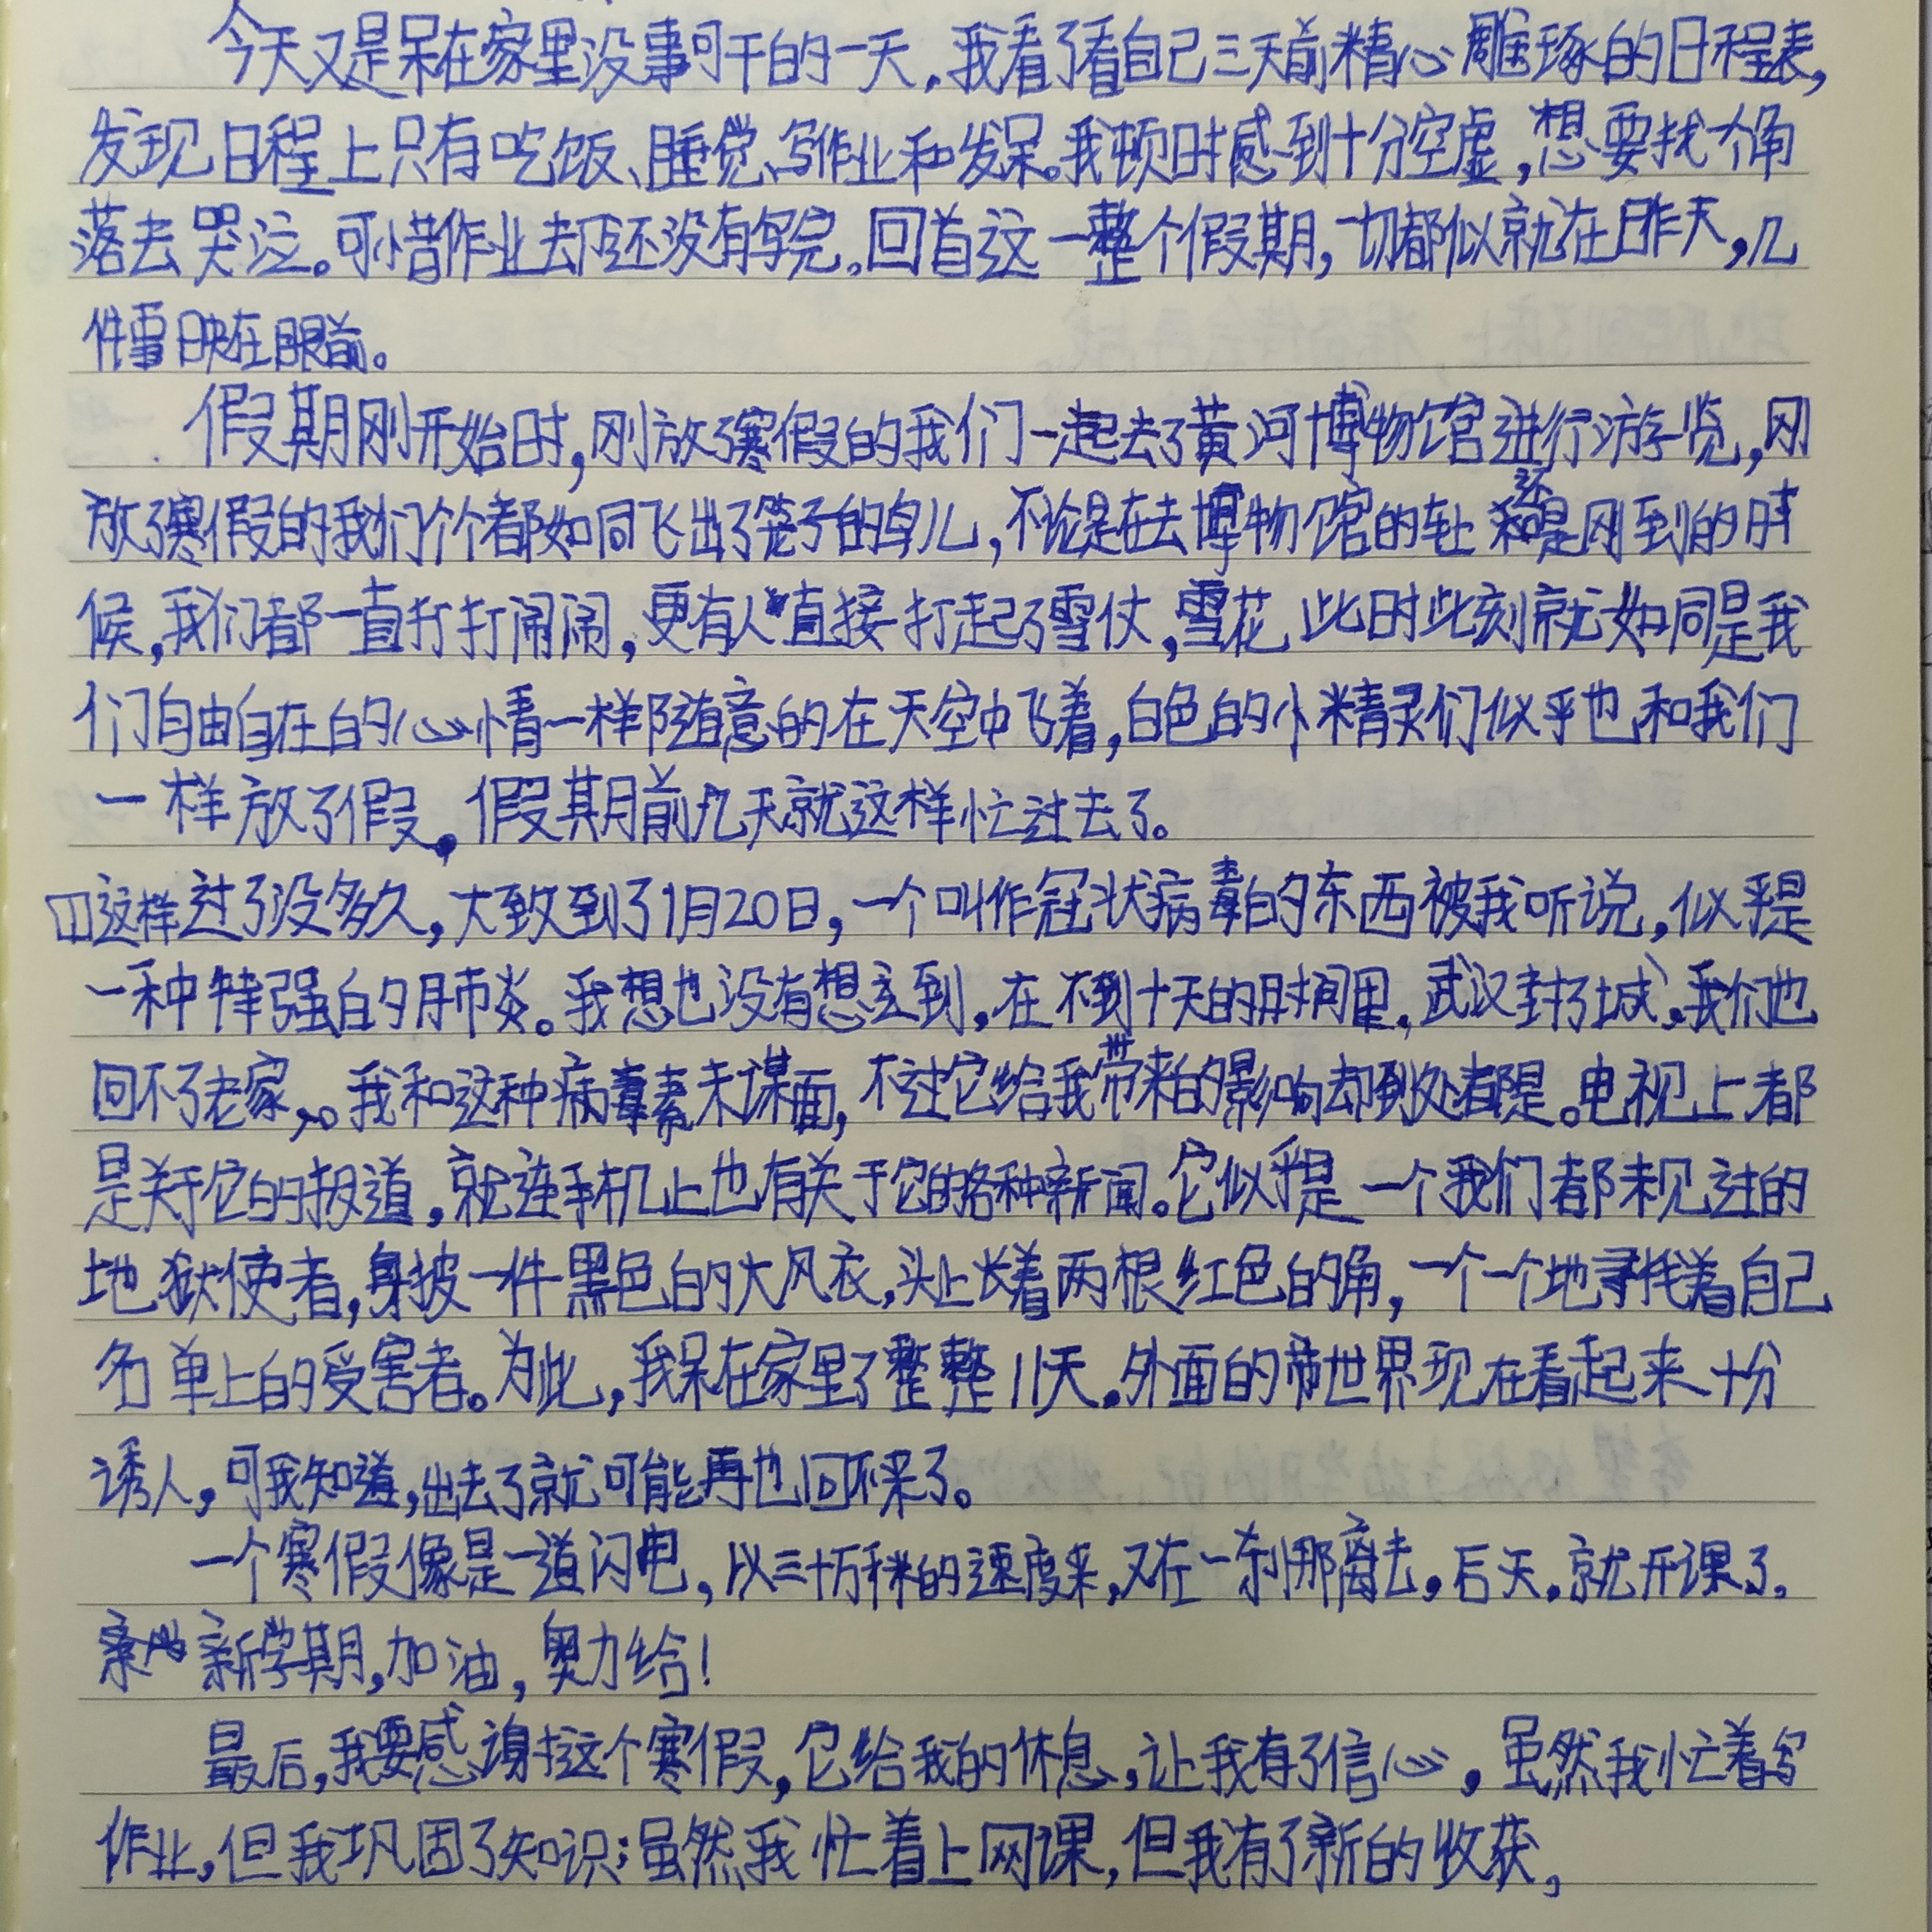 今天又是呆在家里没事可干的一天，我看了看自己三天前精心雕琢的日程表，
发现日程上只有吃饭、睡觉、写作业和发呆。我顿时感到十分空虚，想要找个角
落去哭泣。可惜作业却还没有写完。回首这一整个假期，一切都似就在昨天，几
件事映在眼前。
假期刚开始时，刚放了寒假的我们一起去了黄河博物馆进行游览，刚
放了寒假的我们个个都如同飞出了笼子的鸟儿，不论是在去博物馆的车上还是刚到的时
候，我们都一直打打闹闹，更有人直接打起了雪仗，雪花此时此刻就如同是我
们自由自在的心情一样随意的在天空中飞着，白色的小精灵们似乎也和我们
一样放了假。假期前几天就这样忙过去了。
这样过了没多久，大致到了1月20日，一个叫作冠状病毒的东西被我听说，似乎是
一种特强的肺炎。我想也没有想到，在不到十天的时间里，武汉封了城，我们也
回不了老家。我和这种病毒素未谋面，不过它给我带来的影响却到处都是。电视上都
是关于它的报道，就连手机上也有关于它的各种新闻。它似乎是一个我们都未见过的
地狱使者，身披一件黑色的大风衣，头上长着两根红色的角，一个一个地寻找着自己
名单上的受害者。为此，我呆在家里了整整11天。外面的世界现在看起来十分
诱人，可我知道，出去了就可能再也回不来了。
一个寒假像是一道闪电，以三十万千米的速度来，又在一刹那离去，后天，就开课了。
新学期，加油，奥力给！
最后，我要感谢这个寒假，它给我的休息，让我有了信心，虽然我忙着写
作业，但我巩固了知识；虽然我忙着上网课，但我有了新的收获，